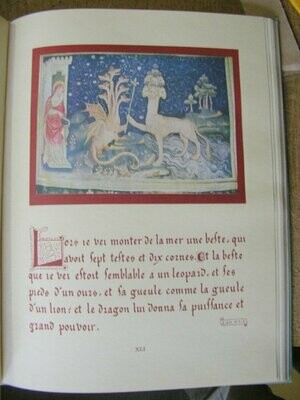 Lors ie vei monter de la mer une beste, qui
avoit sept testes et dix cornes. Et la beste
que ie vei estoit semblable a un leopard, et ses
pieds d'un ours, et sa gueule comme la gueule
d'un lion: et le dragon lui donna sa puissance et
grand pouvoir.
XLI